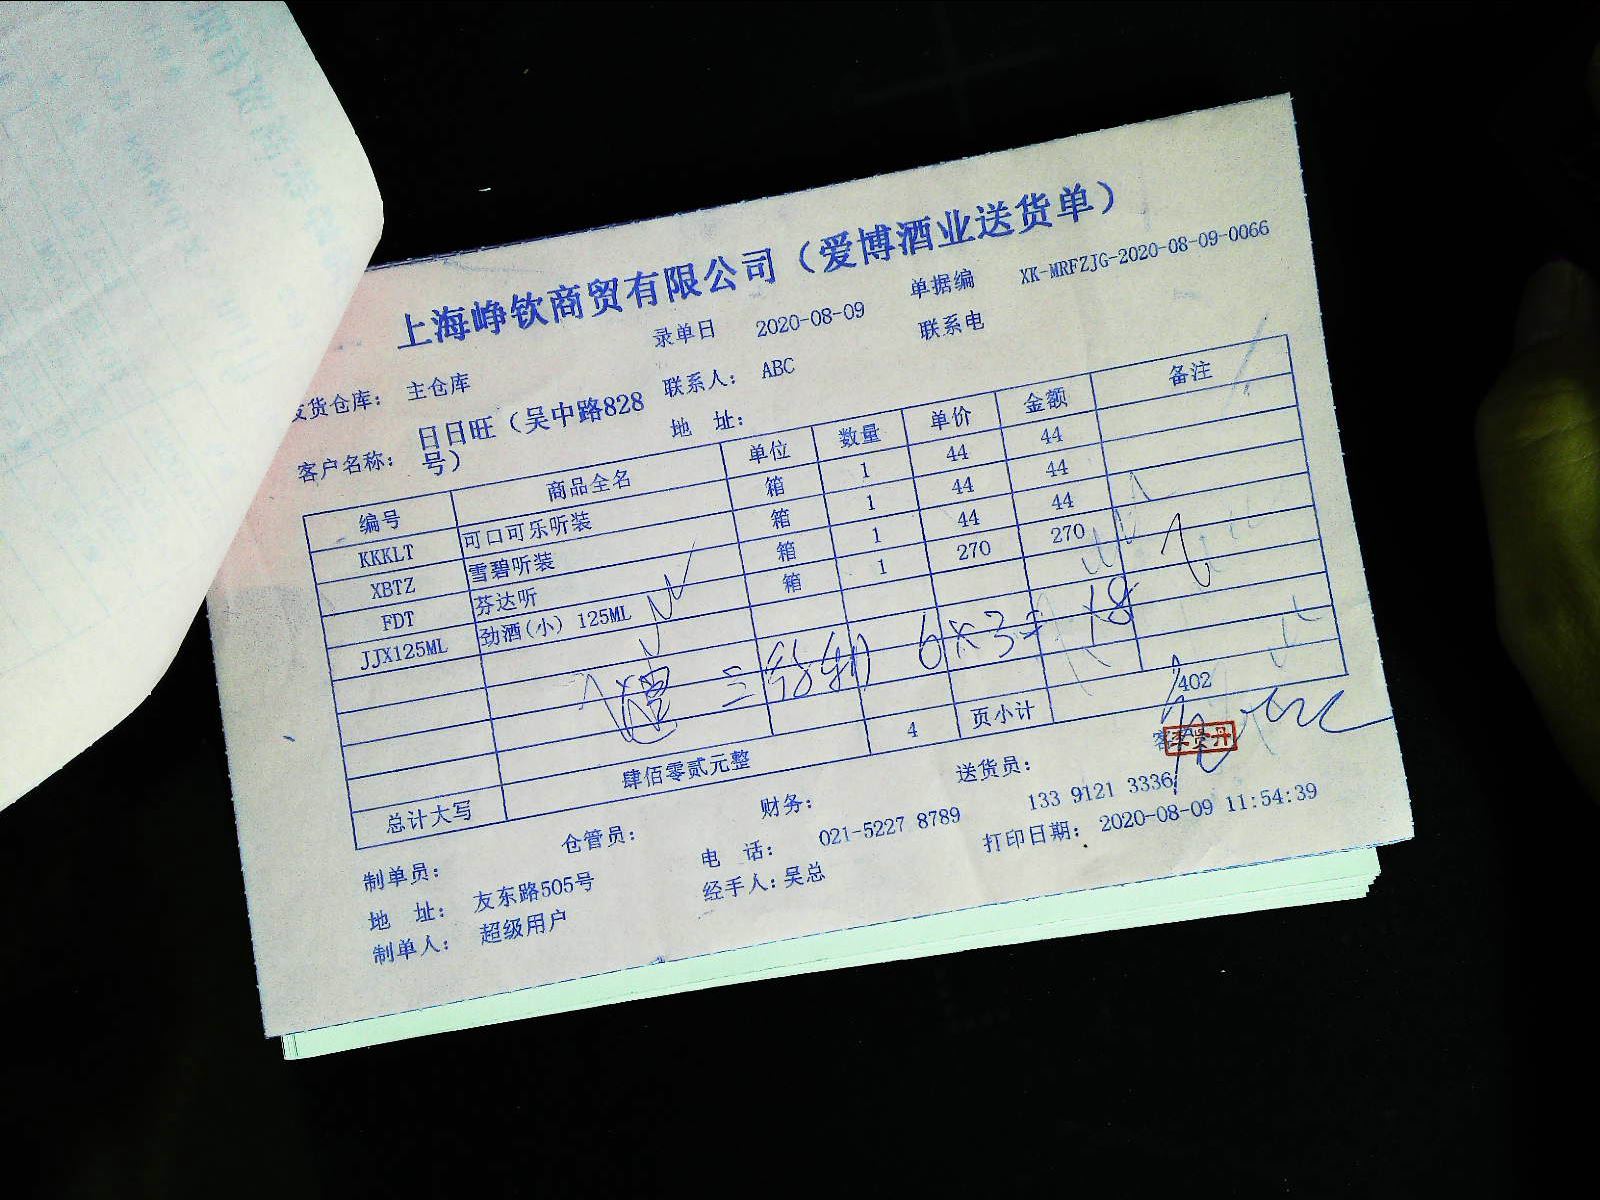 上海峥钦商贸有限公司（爱博酒业送货单）
录单日 2020-08-09 单据编 XK-MRFZJG-2020-08-09-0066
发货仓库： 主仓库 联系人： ABC 联系电
客户名称： 日日旺（吴中路828号） 地 址：
编号 商品全名 单位 数量 单价 金额 备注
KKKLT 可口可乐听装 箱 1 44 44
XBTZ 雪碧听装 箱 1 44 44
FDT 芬达听 箱 1 44 44
JJX125ML 劲酒(小) 125ML 箱 1 270 270
6×3=18
总计大写 肆佰零贰元整 4 页小计 402
制单员： 仓管员： 财务： 送货员： 客
地 址： 友东路505号 电 话： 021-5227 8789 133 9121 3336
制单人： 超级用户 经手人：吴总 打印日期： 2020-08-09 11:54:39